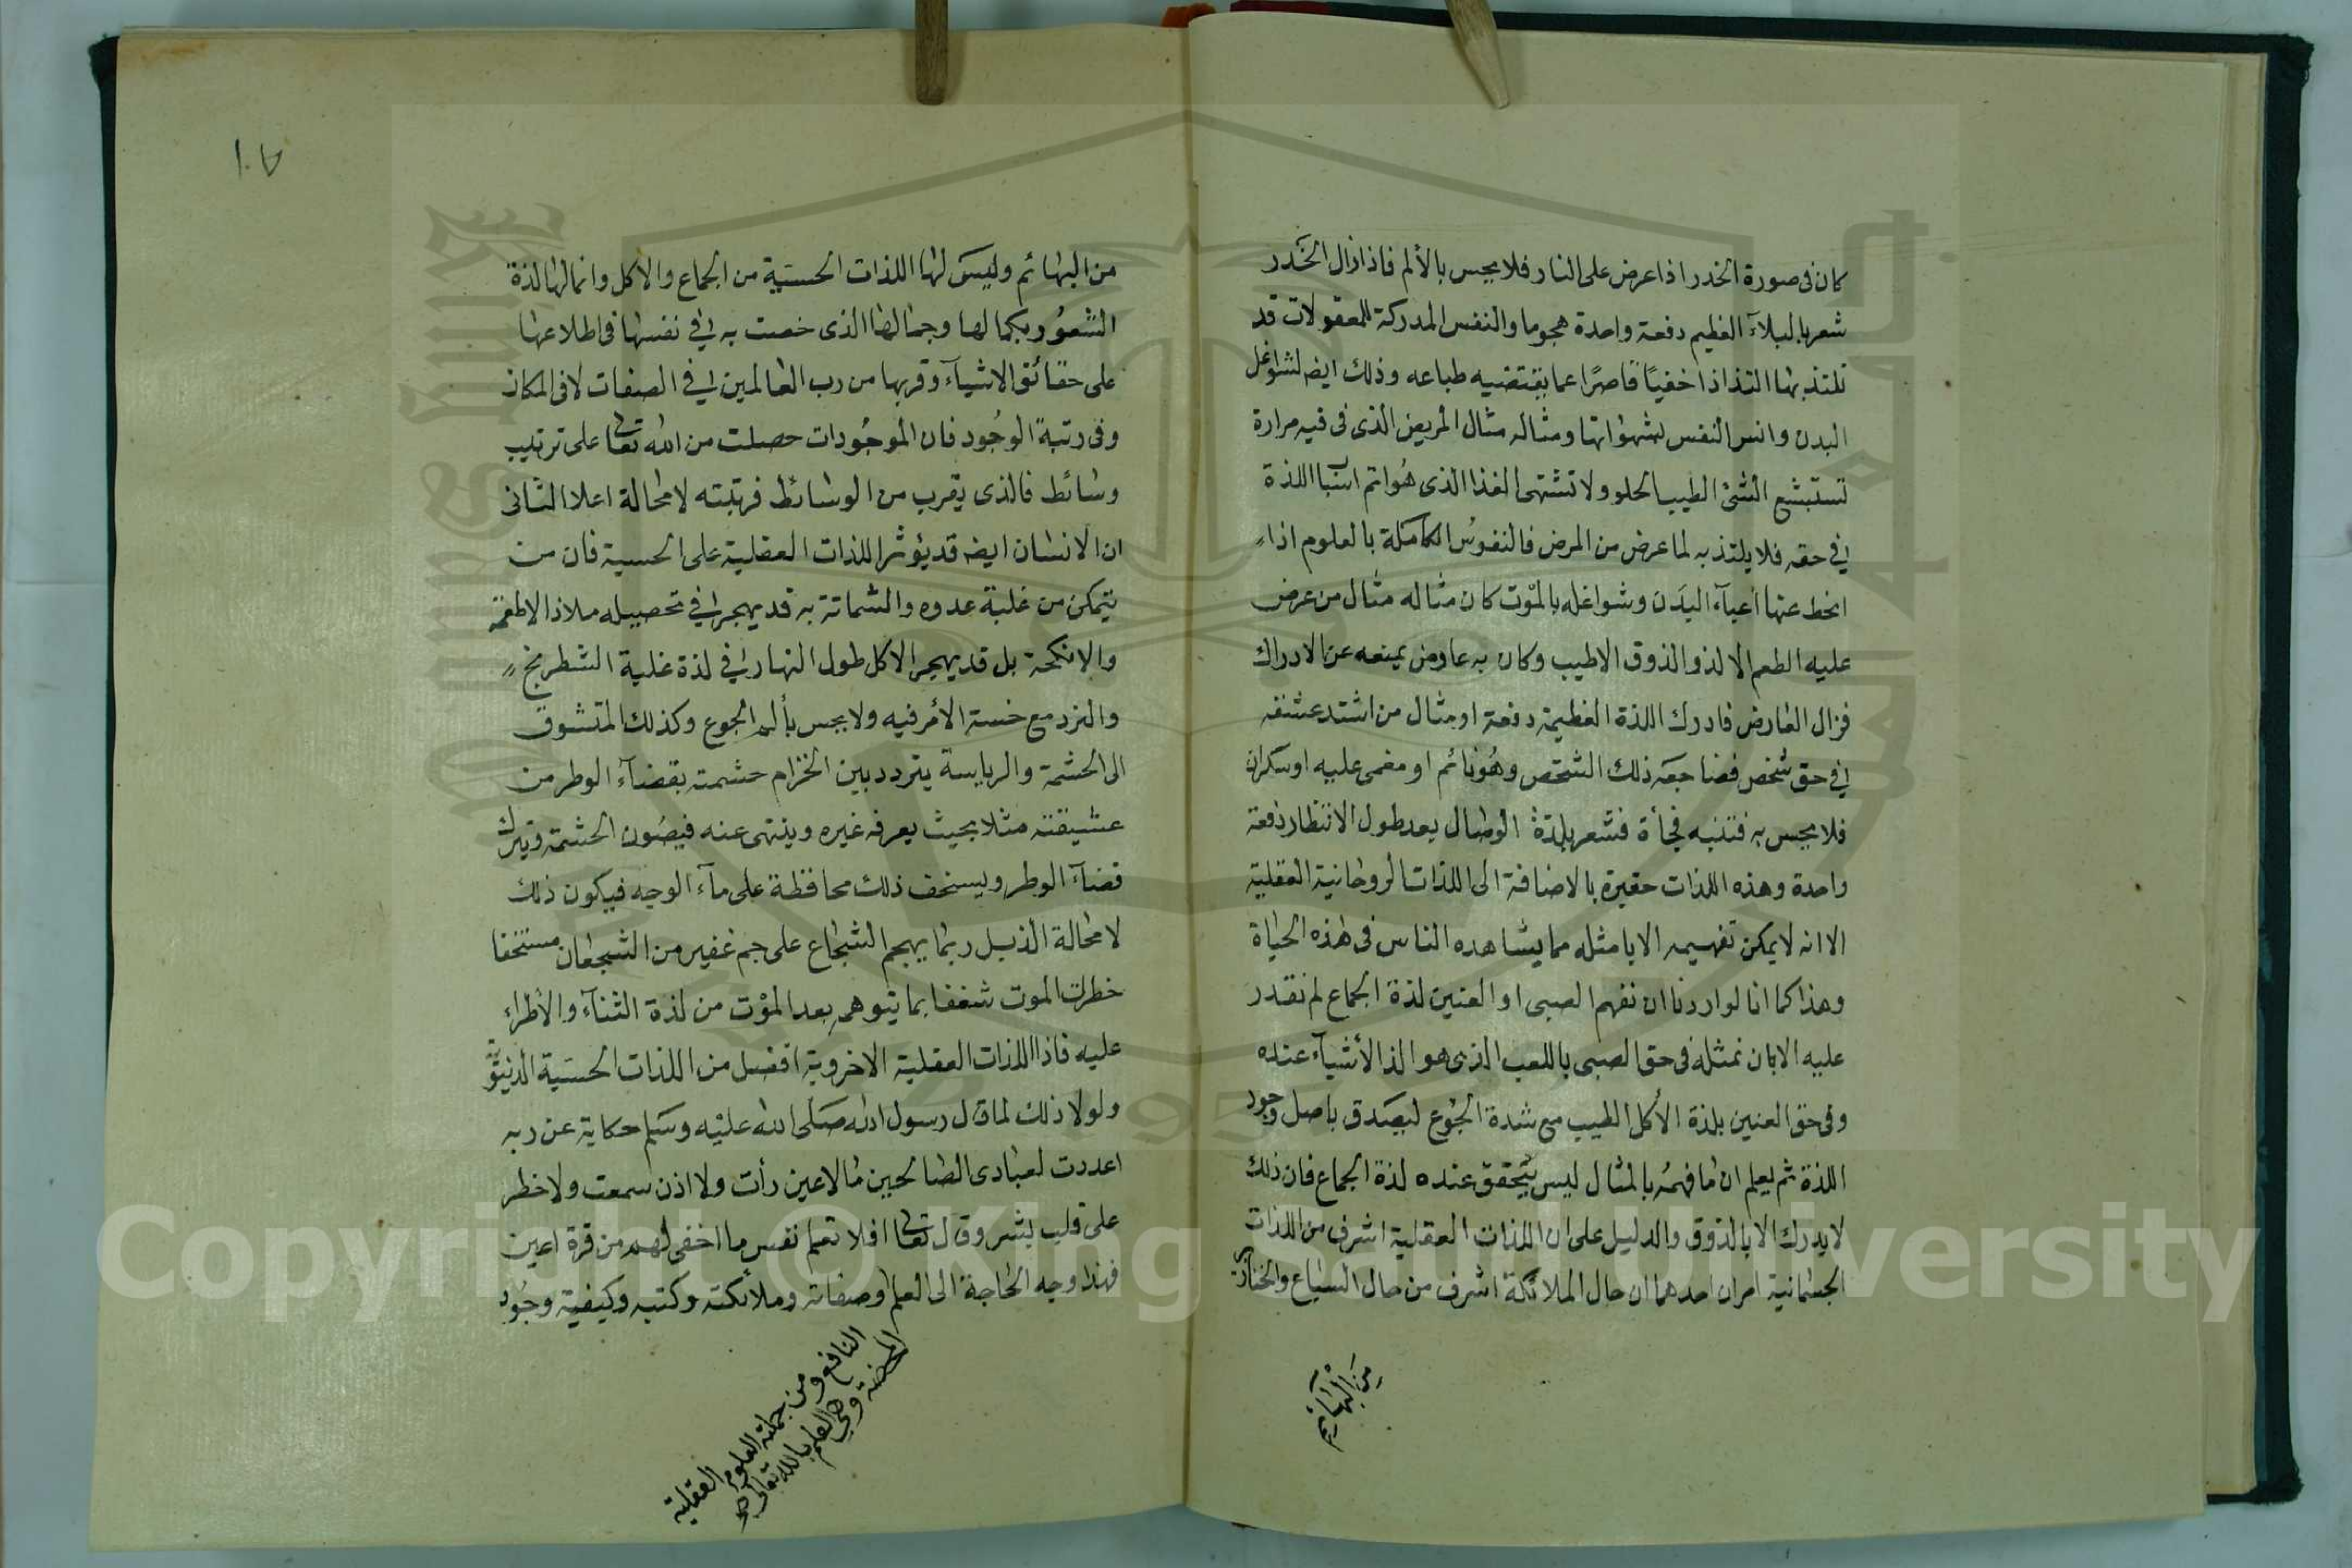 كان فى صورة الخدر اذا عرض على النار فلا يحس بالألم فاذا زال الخدر
شعر بالبلآء العظيم دفعة واحدة هجوما والنفس المدركة للمعقولات قد
تلتذ بها التذاذا خفيًا قاصرًا عما يقتضيه طباعه وذلك ايضا لشواغل
البدن وانس النفس بشهواتها ومثاله مثال المريض الذى فى فيه مرارة
تستبشع الشئ الطيب الحلو ولا تشتهى الغذا الذى هُو اتم اسباب اللذة
فى حقه فلا يلتذ به لما عرض من المرض فالنفوسُ الكاملة بالعلوم اذا
انحط عنها أعبآء البدَن وشواغله بالموت كان مثاله مثال من عرض
عليه الطعم الالذ والذوق الاطيب وكان به عارض يمنعه عن الادراك
فزال العارض فادرك اللذة العظيمة دفعة او مثال من اشتد عشقه
فى حق شخص فضاجعه ذلك الشخص وهُو نائم او مغمى عليه او سكران
فلا يحس به فتنبه فجأة فشعر بلذة الوصال بعد طول الانتظار دفعة
واحدة وهذه اللذات حقيرة بالاضافة الى اللذات الروحانية العقلية
الا انه لا يمكن تفهيمه الا بامثله مما يشاهده الناس فى هذه الحياة
وهذا كما انا لو اردنا ان نفهم الصبى او العنين لذة الجماع لم نقدر
عليه الا بان نمثله فى حق الصبى باللعب الذى هو الذ الأشيآء عنده
وفى حق العنين بلذة الأكل الطيب مع شدة الجُوع ليصَدق باصل وجود
اللذة ثم يعلم ان ما فهمهُ بالمثال ليس يتحقق عنده لذة الجماع فان ذلك
لا يدرك الا بالذوق والدليل على ان اللذات العقلية اشرف من اللذات
الجسمانية امران احدهما ان حال الملائكة اشرف من حال السباع والخنازير
من البهائم
١٠٧
من البهائم وليسَ لها اللذات الحسيّة من الجماع والاكل وانما لها لذة
الشعوُر بكمالها وجمالها الذى خصت به فى نفسها فى اطلاعها
على حقائق الاشيآء وقربها من رب العالمين فى الصفات لا فى المكان
وفى رتبة الوجُود فان الموجُودات حصلت من الله تعا على ترتيب
وسائط فالذى يقرب من الوسائط فرتبته لا محالة اعلا الثانى
ان الانسان ايضا قد يؤثر اللذات العقلية على الحسية فان من
يتمكن من غلبة عدوه والشماتة به قد يهجر فى تحصيله ملاذ الاطعمة
والانكحة بل قد يهجر الاكل طول النهار فى لذة غلبة الشطرنج
والنرد مع خسة الأمر فيه ولا يحس بألم الجوع وكذلك المتشوق
الى الحشمة والرياسة يتردد بين انخرام حشمته بقضآء الوطر من
عشيقته مثلا بحيث يعرفه غيره وينتهى عنه فيصُون الحشمة ويترك
قضآء الوطر ويستخف ذلك محافظة على مآء الوجه فيكون ذلك
لا محالة الذ بل ربما يهجم الشجاع على جم غفير من الشجعان مستخفا
خطر الموت شغفا بما يتوهمه بعد الموْت من لذة الثنآء والأطراء
عليه فاذا اللذات العقلية الاخروية افضل من اللذات الحسَية الدنيوية
ولولا ذلك لما قال رسول الله صَلى الله عليْه وسَلم حكاية عن ربه
اعددت لعبادى الصالحين ما لا عين رأت ولا اذن سمعت ولا خطر
على قلب بشر وقال تعا افلا تعلم نفس ما اخفى لهم من قرة اعين
فهذا وجه الحاجة الى العلم وصفاته وملائكته وكتبه وكيفية وجُود
النافع ومن جملته العلوم العقلية
المحضة وهى العلم بالله تعالى